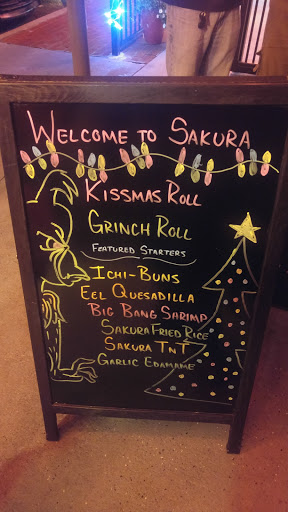 Welcome to Sakura
Kissmas Roll
Grinch Roll
Featured Starters
Ichi-Buns
Eel Quesadilla
Big Bang Shrimp
Sakura Fried Rice
Sakura TnT
Garlic Edamame